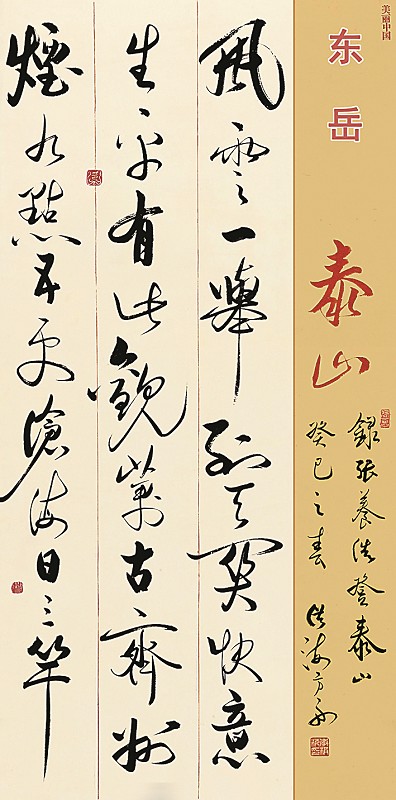 美丽中国
东岳
泰山
錄張養浩登泰山
癸巳之春
風雲一舉到天關快意
生平有此觀萬古齊州
煙九點五更滄海日三竿